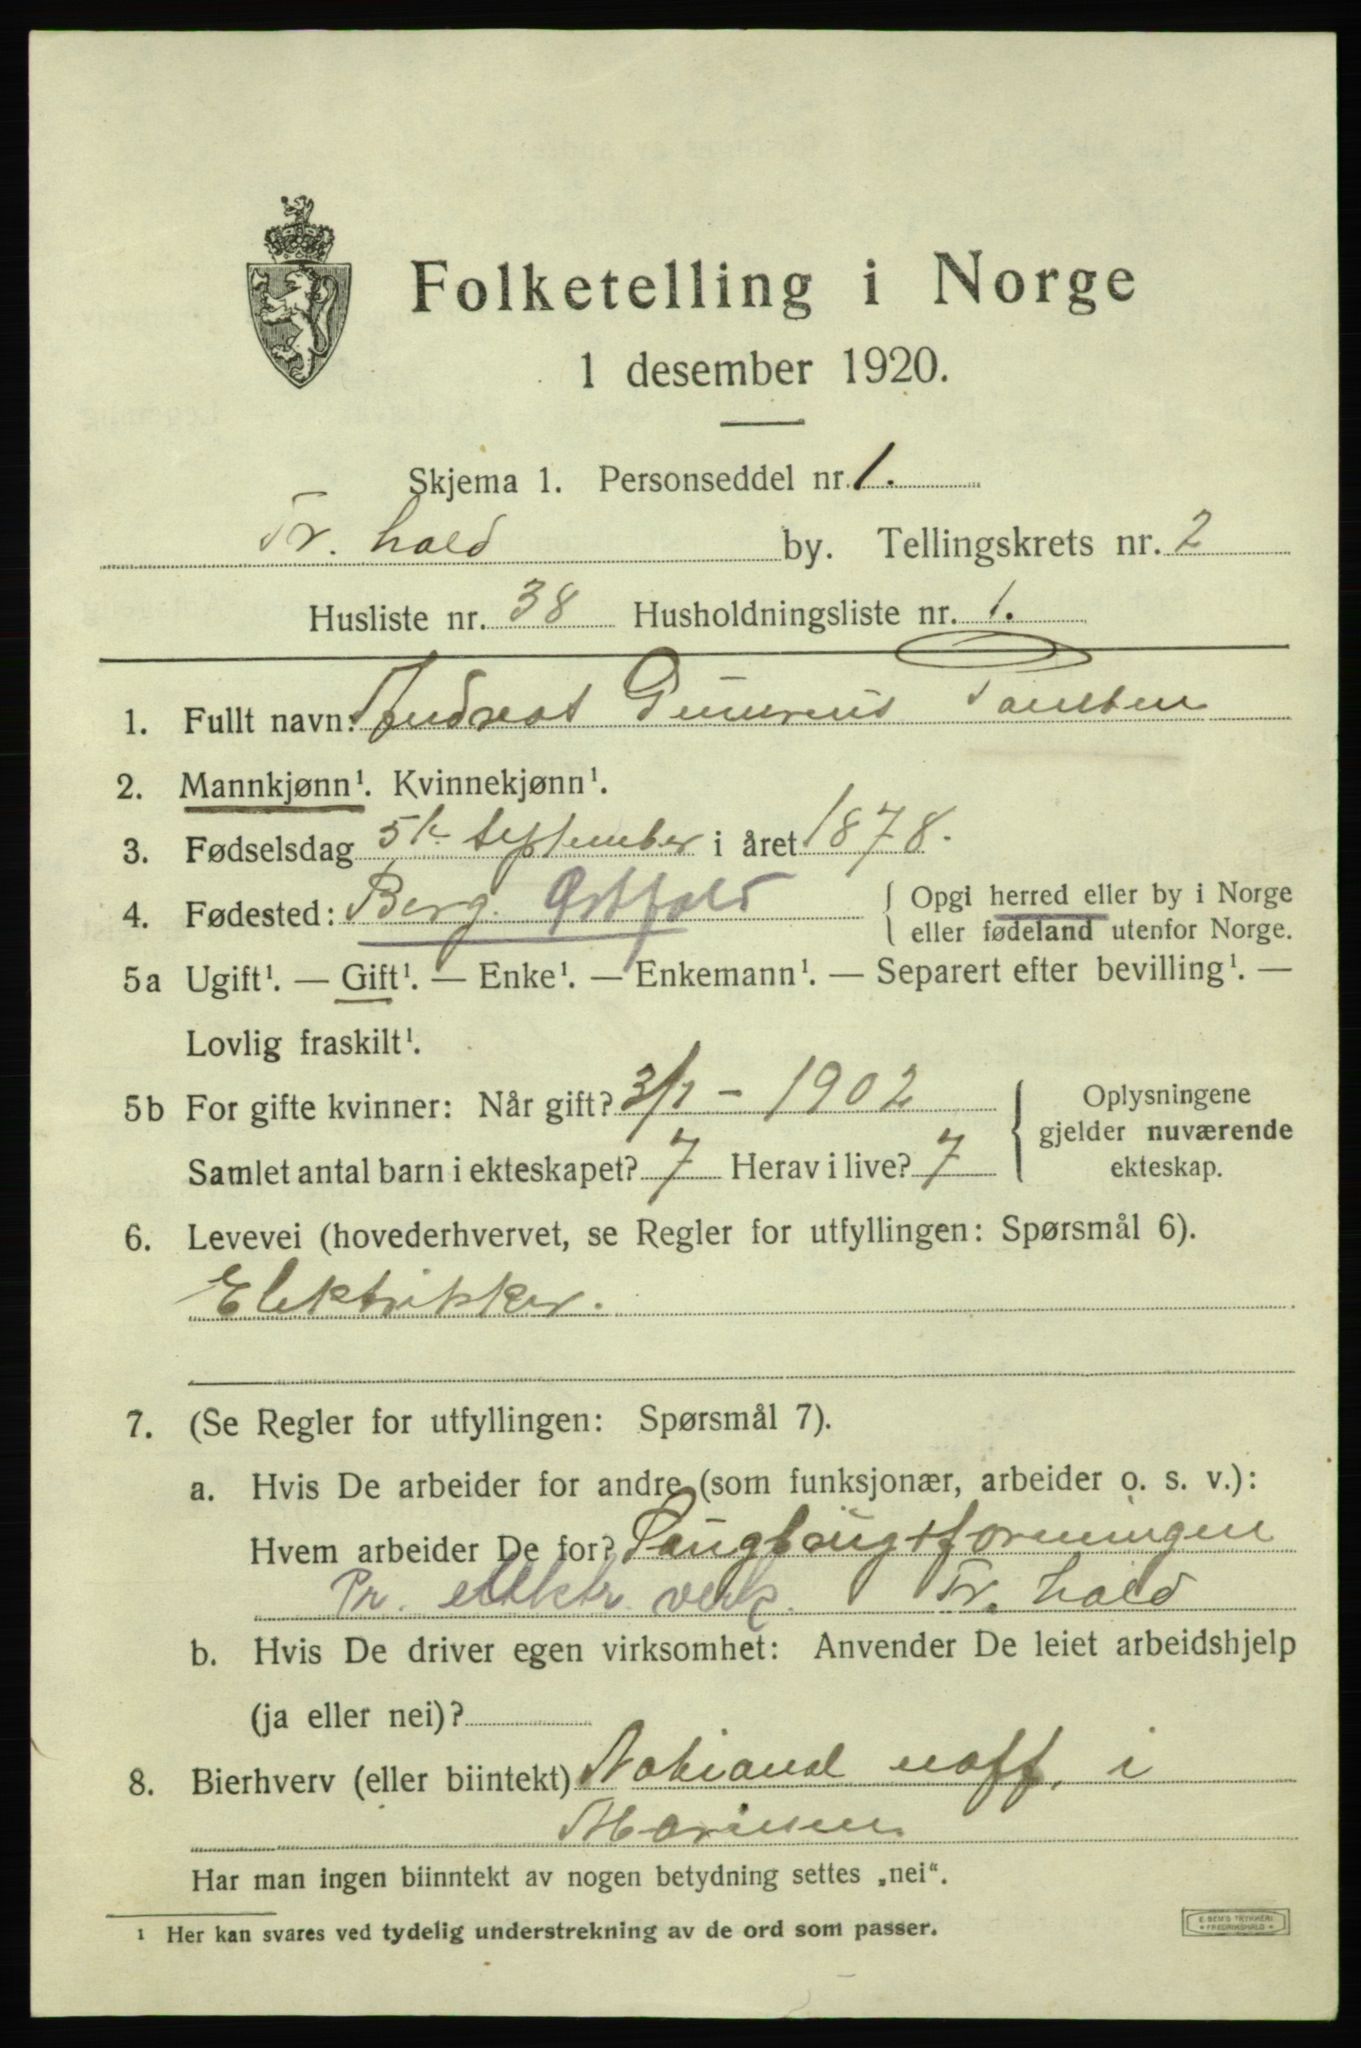 Folketelling i Norge
1 desember 1920.
Skjema 1. Personseddel nr. 1.
Fr. hald by. Tellingskrets nr. 2
Husliste nr. 38 Husholdningsliste nr. 1.
1. Fullt navn: Andreas
2. Mannkjønn¹. Kvinnekjønn¹.
3. Fødselsdag 5te September i året 1878.
4. Fødested: Berg. Østfold { Opgi herred eller by i Norge
eller fødeland utenfor Norge.
5a Ugift¹. — Gift¹. — Enke¹. — Enkemann¹. — Separert efter bevilling¹. —
Lovlig fraskilt¹.
5b For gifte kvinner: Når gift? 3/7 - 1902
Samlet antal barn i ekteskapet? 7 Herav i live? 7
{ Oplysningene
gjelder nuværende
ekteskap.
6. Levevei (hovederhvervet, se Regler for utfyllingen: Spørsmål 6).
Elektrikker.
7. (Se Regler for utfyllingen: Spørsmål 7).
a. Hvis De arbeider for andre (som funksjonær, arbeider o. s. v.):
Hvem arbeider De for?
Pr. elektr. verk. Fr. hald
b. Hvis De driver egen virksomhet: Anvender De leiet arbeidshjelp
(ja eller nei)?
8. Bierhverv (eller biintekt) uoff. i
Marinen
Har man ingen biinntekt av nogen betydning settes „nei“.
¹ Her kan svares ved tydelig understrekning av de ord som passer.
E. SEM'S TRYKKERI
* FREDRIKSHALD *